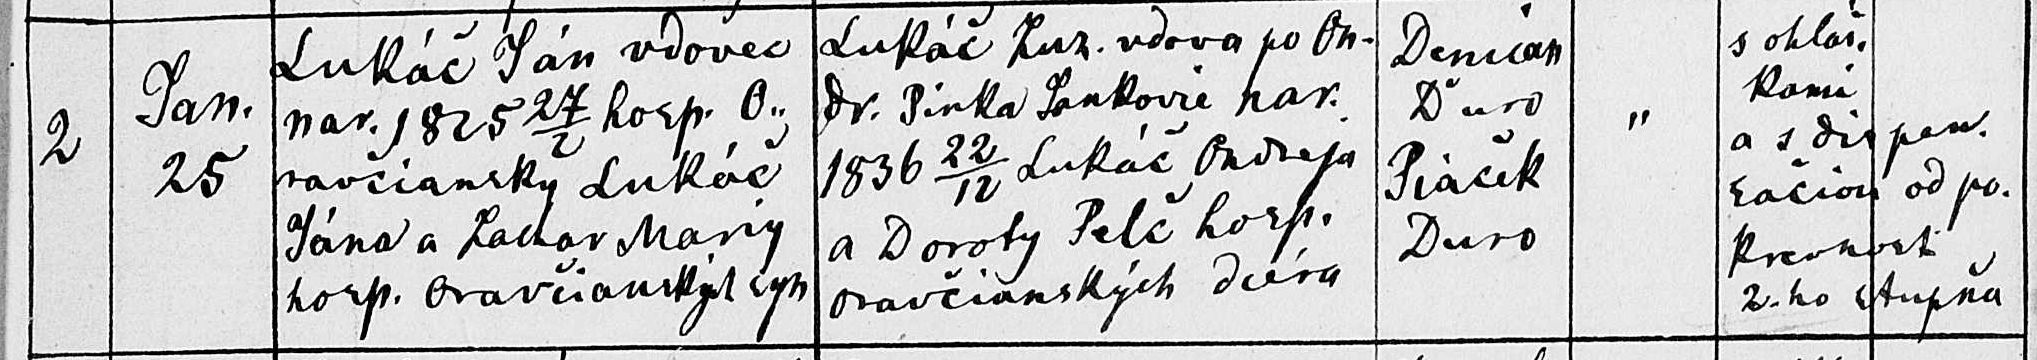 2
Jan.
25
Lukáč Ján vdovec
nar. 1825 27/2 hosp. O„
ravčiansky Lukáč
Jána a Zachar Mariy
hosp. oravčianských syn
Lukáč Zuz. vdova po On-
dr. Pirka Jankovie nar.
1836 22/12 Lukáč Ondreja
a Doroty Pelč hosp.
oravčianských dcéra
Denican
Ďuro
Piaček
Duro
"
s ohláš.
kami
a s dispen.
začiou od po.
krevnosti
2.ho stupňa